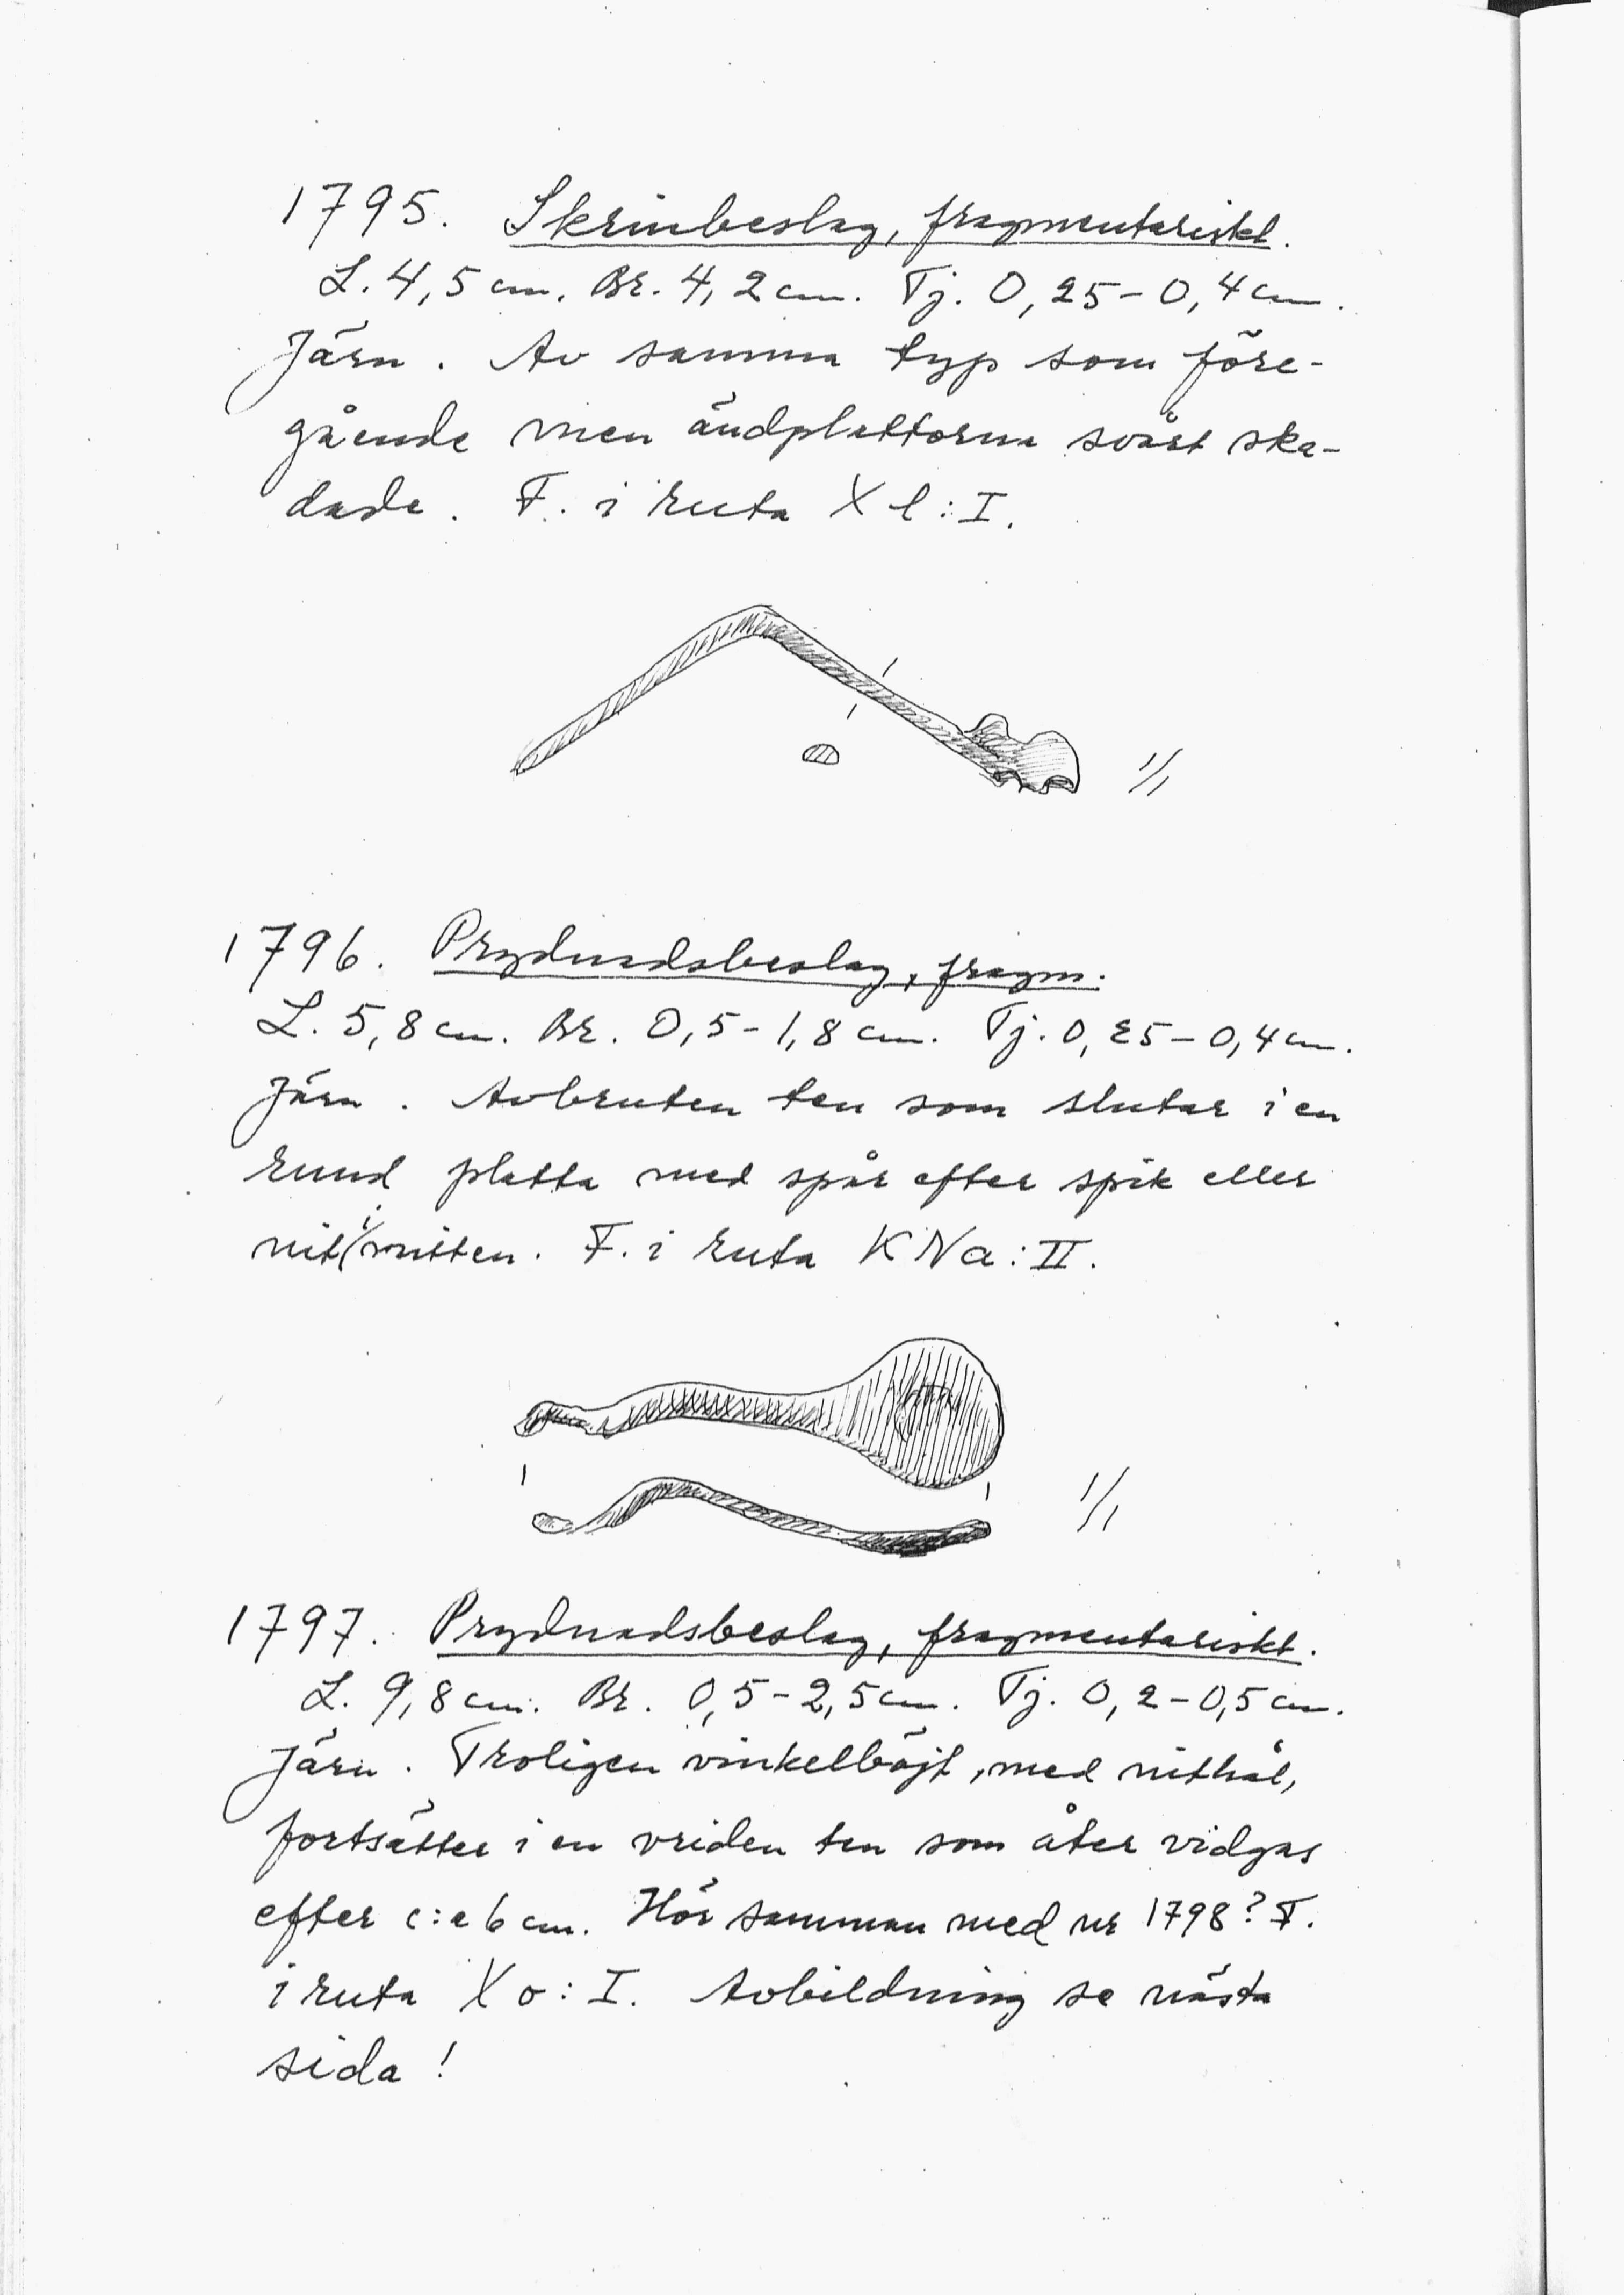 1795. Skrinbeslag, fragmentariskt.
L. 4,5 cm. Br. 4,2 cm. Tj. 0,25-0,4 cm.
Järn. Av samma typ som före-
gående men ändplattorna svårt ska-
dade. F. i ruta X l : I.
1/1
1796. Prydnadsbeslag, fragm.
L. 5,8 cm. Br. 0,5-1,8 cm. Tj. 0,25-0,4 cm.
Järn. Avbruten ten som slutar i en
rund platta med spår efter spik eller
nit i mitten. F. i ruta K N a : II.
1/1
1797. Prydnadsbeslag, fragmentariskt.
L. 9,8 cm. Br. 0,5-2,5 cm. Tj. 0,2-0,5 cm.
Järn. Troligen vinkelböjt, med nithål,
fortsätter i en vriden ten som åter vidgas
efter c:a 6 cm. Hör samman med nr 1798? F.
i ruta X o : I. Avbildning se nästa
sida!